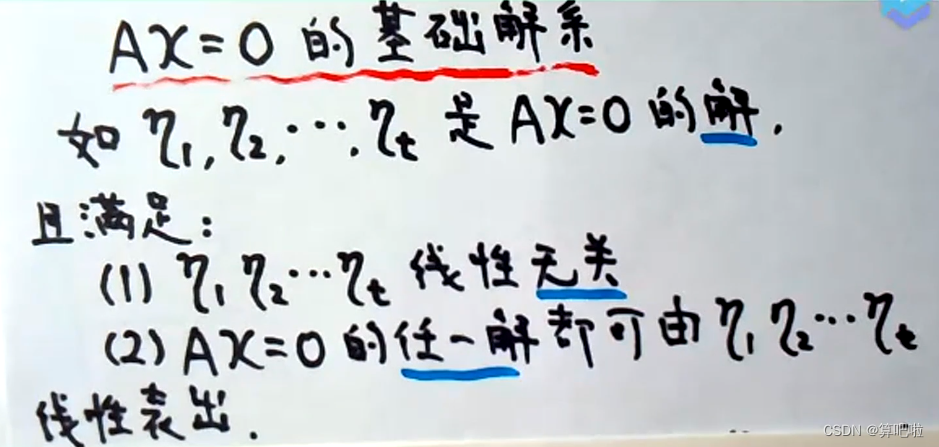 AX=0 的基础解系
如 η₁,η₂,…,ηₜ 是 AX=0 的解,
且满足:
(1) η₁ η₂…ηₜ 线性无关
(2) AX=0 的任一解都可由 η₁ η₂…ηₜ
线性表出.
CSDN @算吧啦